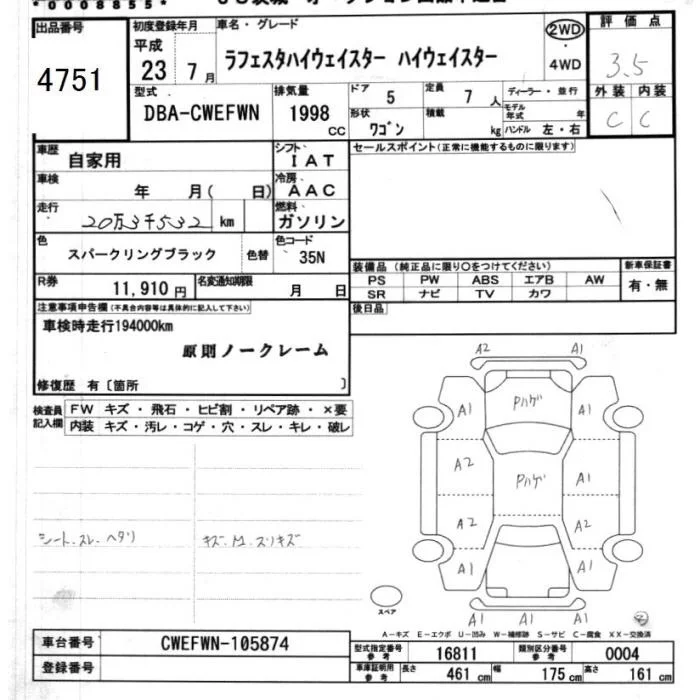 *0008855*
出品番号
4751
初度登録年月
平成
23年 7月
車名・グレード
ラフェスタハイウェイスター ハイウェイスター
2WD
・
4WD
評価点
3.5
外装 内装
C C
型式
DBA-CWEFWN
排気量
1998 cc
ドア 5
定員 7 人
ディーラー・並行
モデル年式 年
形状 ワゴン
積載 kg
ハンドル 左・右
車歴 自家用
シフト IAT
セールスポイント(正常に機能するものに限ります)
車検 年 月( 日)
冷房 AAC
走行 20万3千532 km
燃料 ガソリン
色 スパークリングブラック
色替
色コード 35N
装備品(純正品に限り○をつけてください)
新車保証書
有・無
PS PW ABS エアB AW
SR ナビ TV カワ
R券 11,910円
名変通知期限 月 日
後日品
注意事項申告欄(不具合内容等は具体的に記入して下さい)
車検時走行194000km
原則ノークレーム
修復歴 有〔箇所 〕
検査員記入欄
FW キズ・飛石・ヒビ割・リペア跡・×要
内装 キズ・汚レ・コゲ・穴・スレ・キレ・破レ
シート.スレ.ヘタリ
A2 A1
A1 Pハゲ A1
A2 Pハゲ A1
A2 A2
A1 A1
A1 A1
スペア
A-キズ E-エクボ U-凹み W-補修跡 S-サビ C-腐食 XX-交換済
車台番号 CWEFWN-105874
登録番号
型式指定番号 参考 16811
類別区分番号 参考 0004
車庫証明用 参考 長さ 461 cm 幅 175 cm 高さ 161 cm